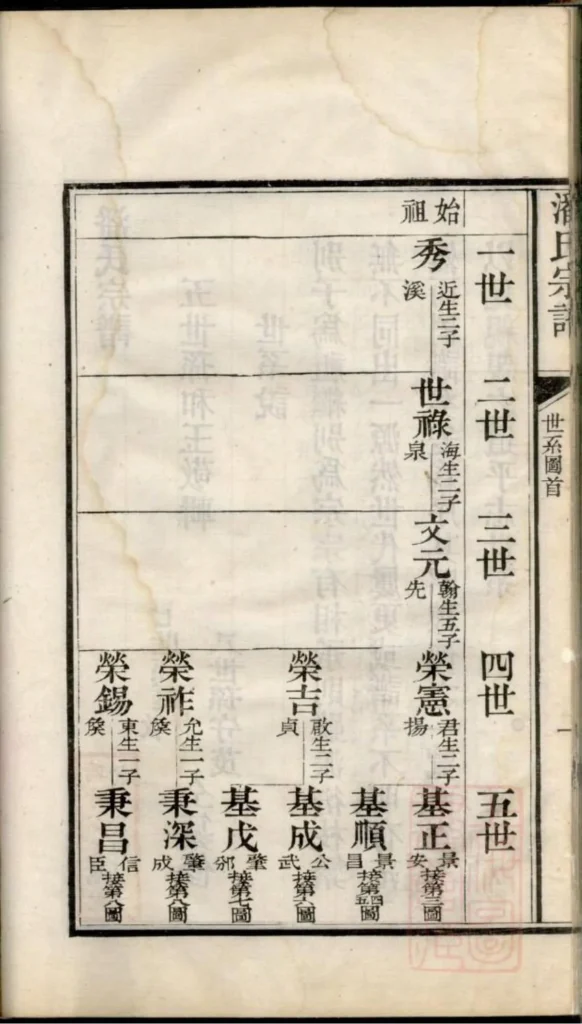 潘氏宗譜
世系圖首
一
一世
二世
三世
四世
五世
始祖
秀
近溪
生二子
世祿
海泉
生二子
文元
翰先
生五子
榮憲
君揚
生二子
基正
景安
接第三圖
基順
景昌
接第四五圖
榮吉
啟貞
生二子
基成
公武
接第六圖
基戊
肇邠
接第七圖
榮祚
允箴
生一子
秉深
肇成
接第八圖
榮錫
東箴
生一子
秉昌
信臣
接第八圖